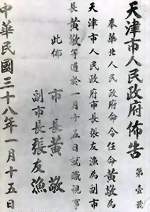 天津市人民政府佈告 第壹號
奉華北人民政府命令任黃敬為
天津市人民政府市長張友漁為副市
長黃敬等遵於一月十五日就職視事
此佈
市長黃敬
副市長張友漁
中華民國三十八年一月十五日